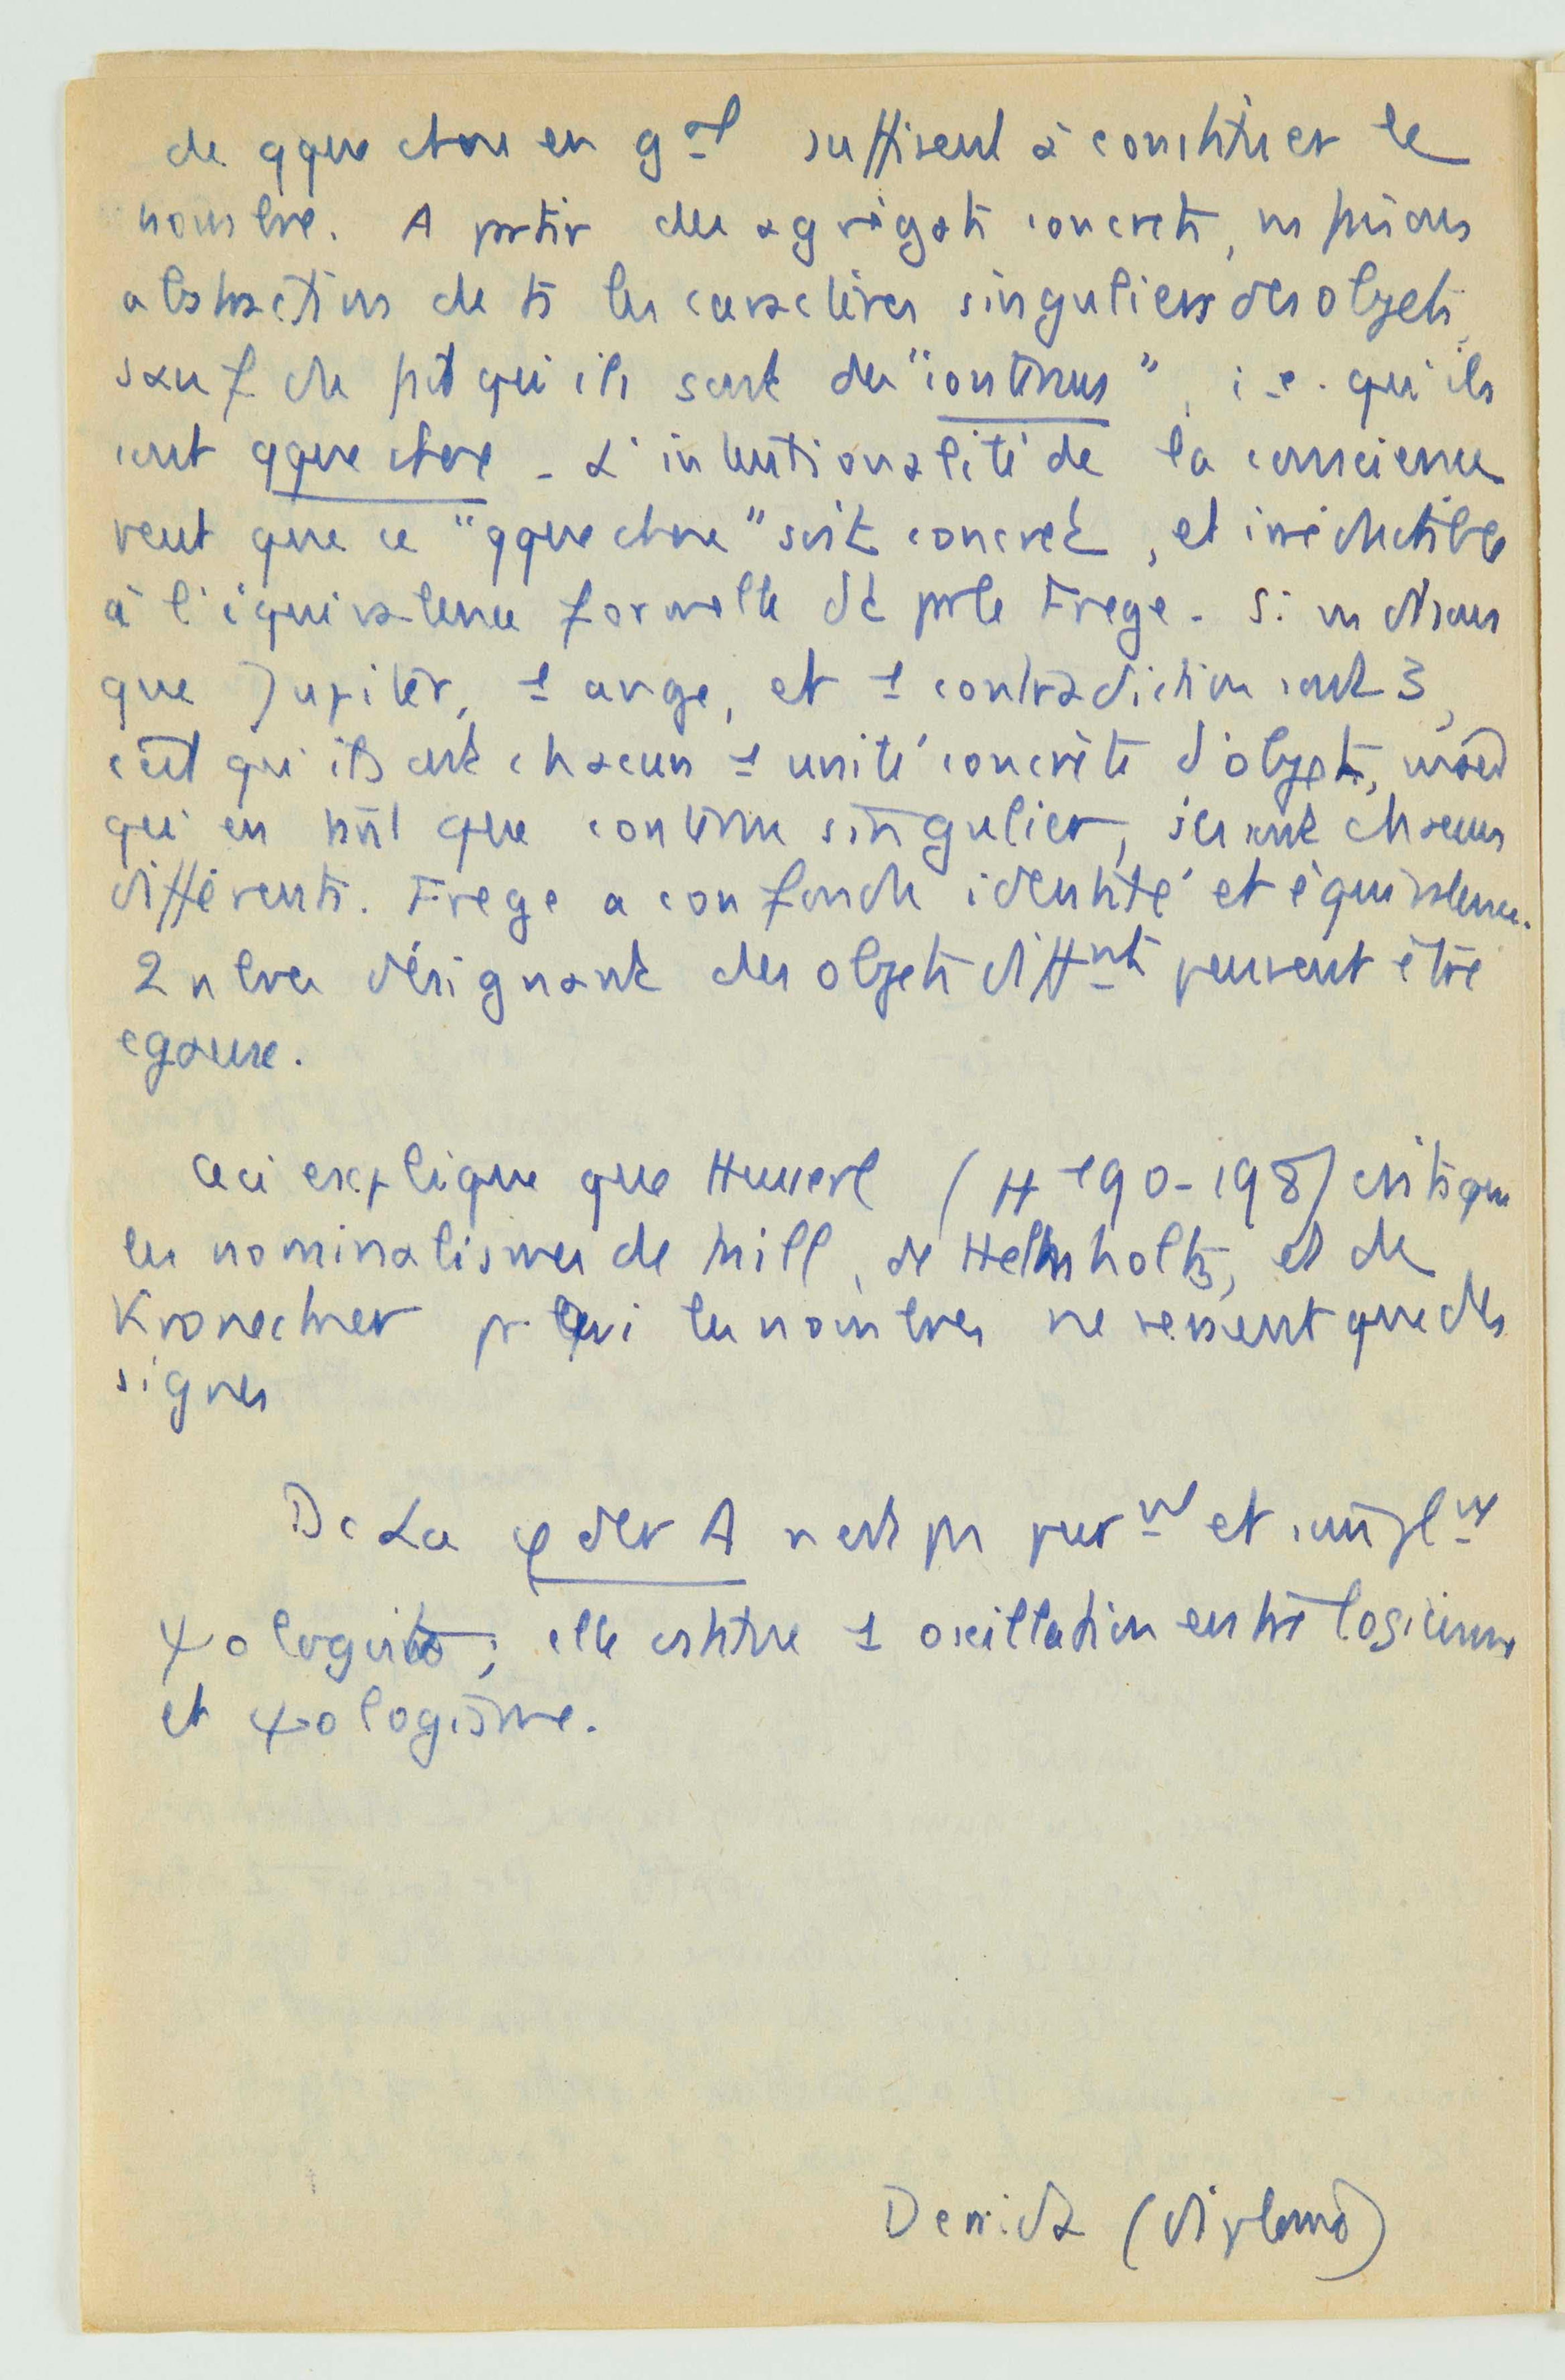 de qque chose en gal suffisent à constituer le
nombre. A partir des agrégats concrets, ns faisons
abstraction de ts les caractères singuliers des objets,
sauf du fait qu'ils sont des "contenus", i.e. qu'ils
sont qque chose _ L'intentionalité de la conscience
veut que ce "qque chose" soit concret, et irréductible
à l'équivalence formelle dt parle Frege _ Si ns disons
que Jupiter, 1 ange, et 1 contradiction sont 3,
c'est qu'ils ont chacun 1 unité concrète d'objets,
qu'en tant que contenu singulier, ils sont chacun
différents. Frege a confondu identité et équivalence.
2 nbres désignant des objets diffnts peuvent être
egaux.
Ceci explique que Husserl (H 190-198) critique
les nominalismes de Mill, de Helmholtz, et de
Kronecker pr qui les nombres ne seraient que des
signes
Dc La φ der A n'est pas purnt et simplnt
ψologiste; elle est 1 oscillation entre logicisme
et ψologisme.
Derrida (diplome)